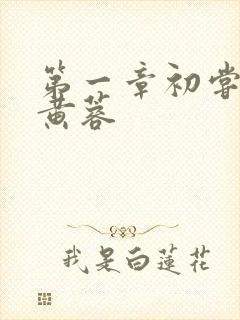 第一章初嘗
黄蓉
我是白蓮花